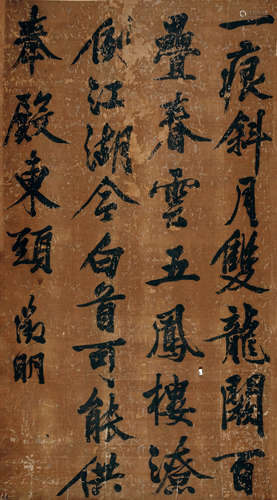 一痕斜月雙龍闕百
疊春雲五鳳樓潦
倒江湖今白首可能供
奉殿東頭 徵明